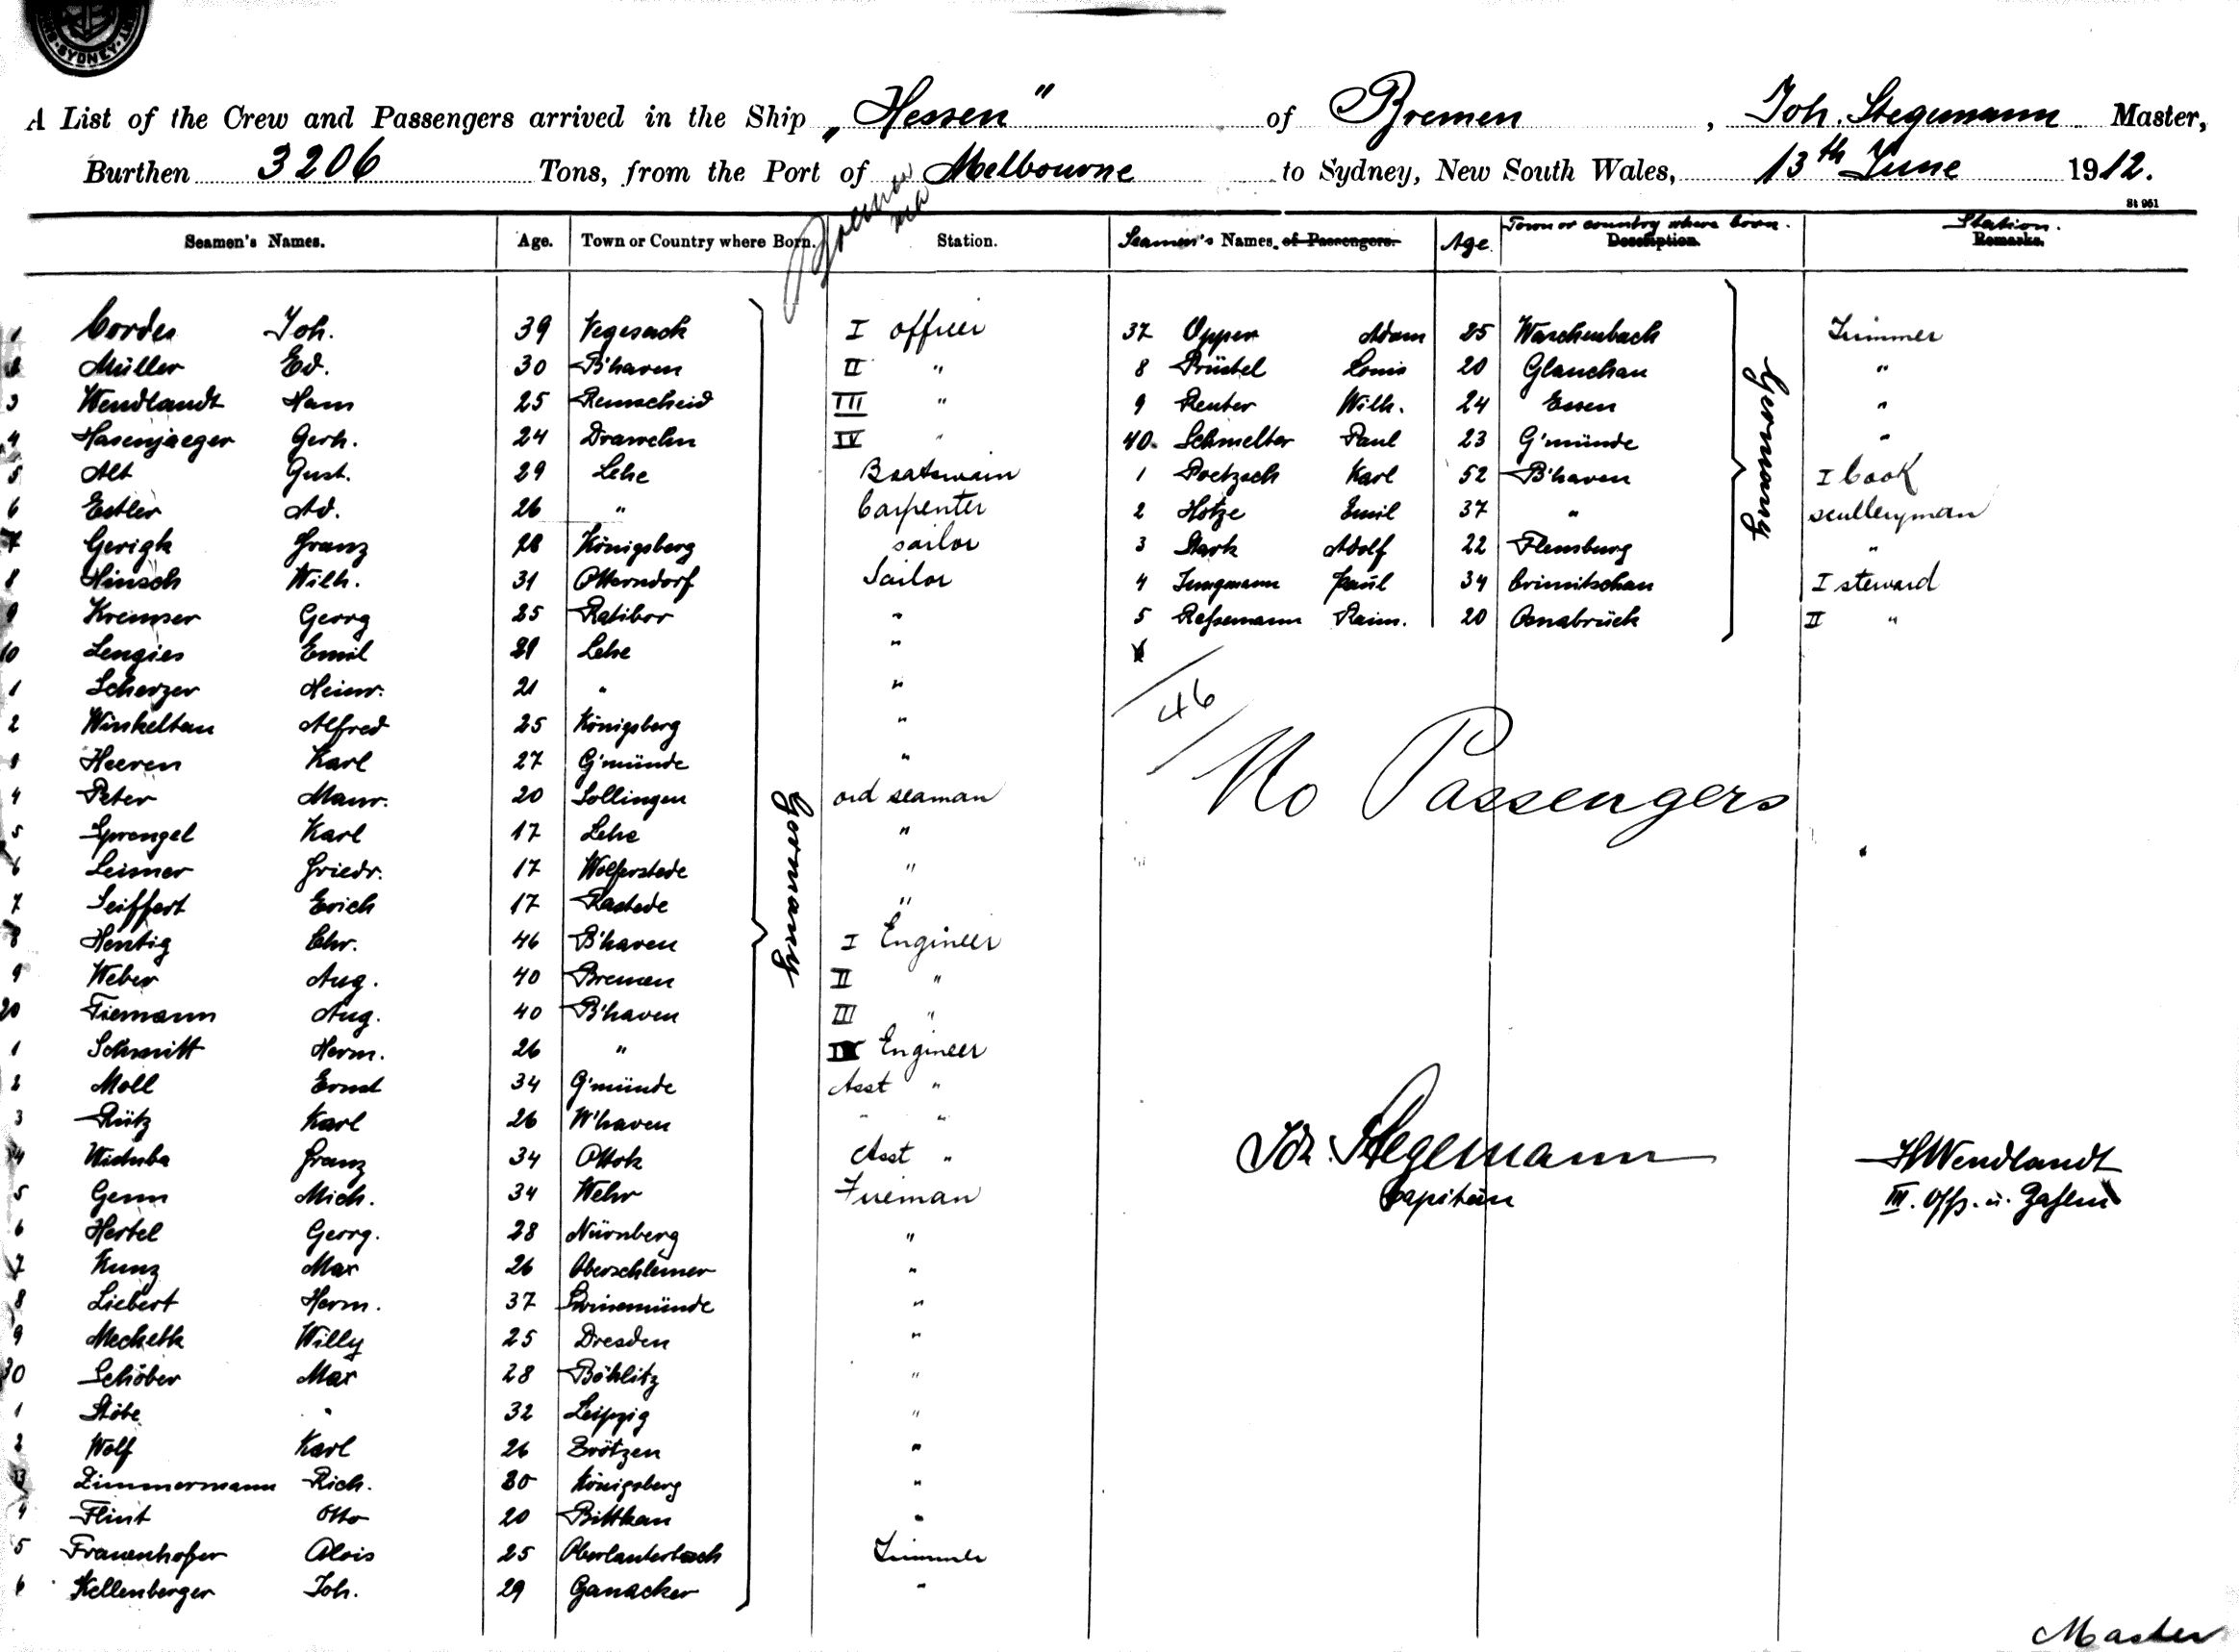 SYDNEY
A List of the Crew and Passengers arrived in the Ship „Hessen" of Bremen, Joh. Stegemann Master,
Burthen 3206 Tons, from the Port of Melbourne to Sydney, New South Wales, 13th June 1912.
St 961
Seamen's Names. Age. Town or Country where Born. Station. Seamen's Names of Passengers. Age Town or country where born. Description. Station. Remarks.
1 Cordes Joh. 39 Vegesack I officer 37 Opper Adam 25 Waschenbach Trimmer
2 Müller Ed. 30 B'haven II " 8 Prüstel Louis 20 Glauchau "
3 Wendlandt Hans 25 Remscheid III " 9 Reuter Wilh. 24 Essen "
4 Hasenjaeger Gerh. 24 Drawehn IV " 40. Schmelter Paul 23 G'münde "
5 Alt Gust. 29 Lehe Boatswain 1 Poetzsch Karl 52 B'haven I Cook
6 Estler Ad. 26 " Carpenter 2 Hotze Emil 37 " sculleryman
7 Gerigk Franz 28 Königsberg sailor 3 Stark Adolf 22 Flensburg "
8 Hinsch Wilh. 31 Otterndorf Sailor 4 Jungmann Paul 34 Crimitschau I steward
9 Kremser Georg 25 Ratibor " 5 Rassemann Raim. 20 Osnabrück II "
10 Lengies Emil Lehe "
1 Scherzer Heinr. 21 " "
2 Winkeltau Alfred 25 Königsberg "
Heeren Karl 27 G'münde "
4 Peter Maur. 20 Sollingen ord seaman
5 Sprengel Karl 17 Lehe "
6 Leimer Friedr. 17 Wolferstede "
7 Seiffert Erich 17 Rastede "
8 Hentig Chr. 46 B'haven I Engineer
9 Weber Aug. 40 Bremen II "
20 Tiemann Aug. 40 B'haven III "
1 Schmitt Herm. 26 " Engineer
2 Moll Ernst 34 G'münde Asst "
3 Rütz Karl 26 W'haven " "
4 Widuba Franz 34 Ottok Asst "
5 Genn Mich. 34 Wehr Fireman
6 Hertel Georg. 28 Nürnberg "
7 Kunz Max 26 Oberschlemer "
8 Liebert Herm. 37 Swinemünde "
9 Mecketk Willy 25 Dresden "
30 Schöber Max 28 Böhlitz "
1 Stöbe " 32 Leipzig "
2 Wolf Karl 26 Brötzen "
3 Zimmermann Rich. 30 Königsberg "
4 Flint Otto 20 Bittkau "
5 Frauenhofer Alois 25 Oberlauterbach Trimmer
6 Kellenberger Joh. 29 Ganacker "
Germany
Germany
46
No Passengers
Joh. Stegemann
Capitän
HWendlandt
III. Offz. u. Zahlm
Master